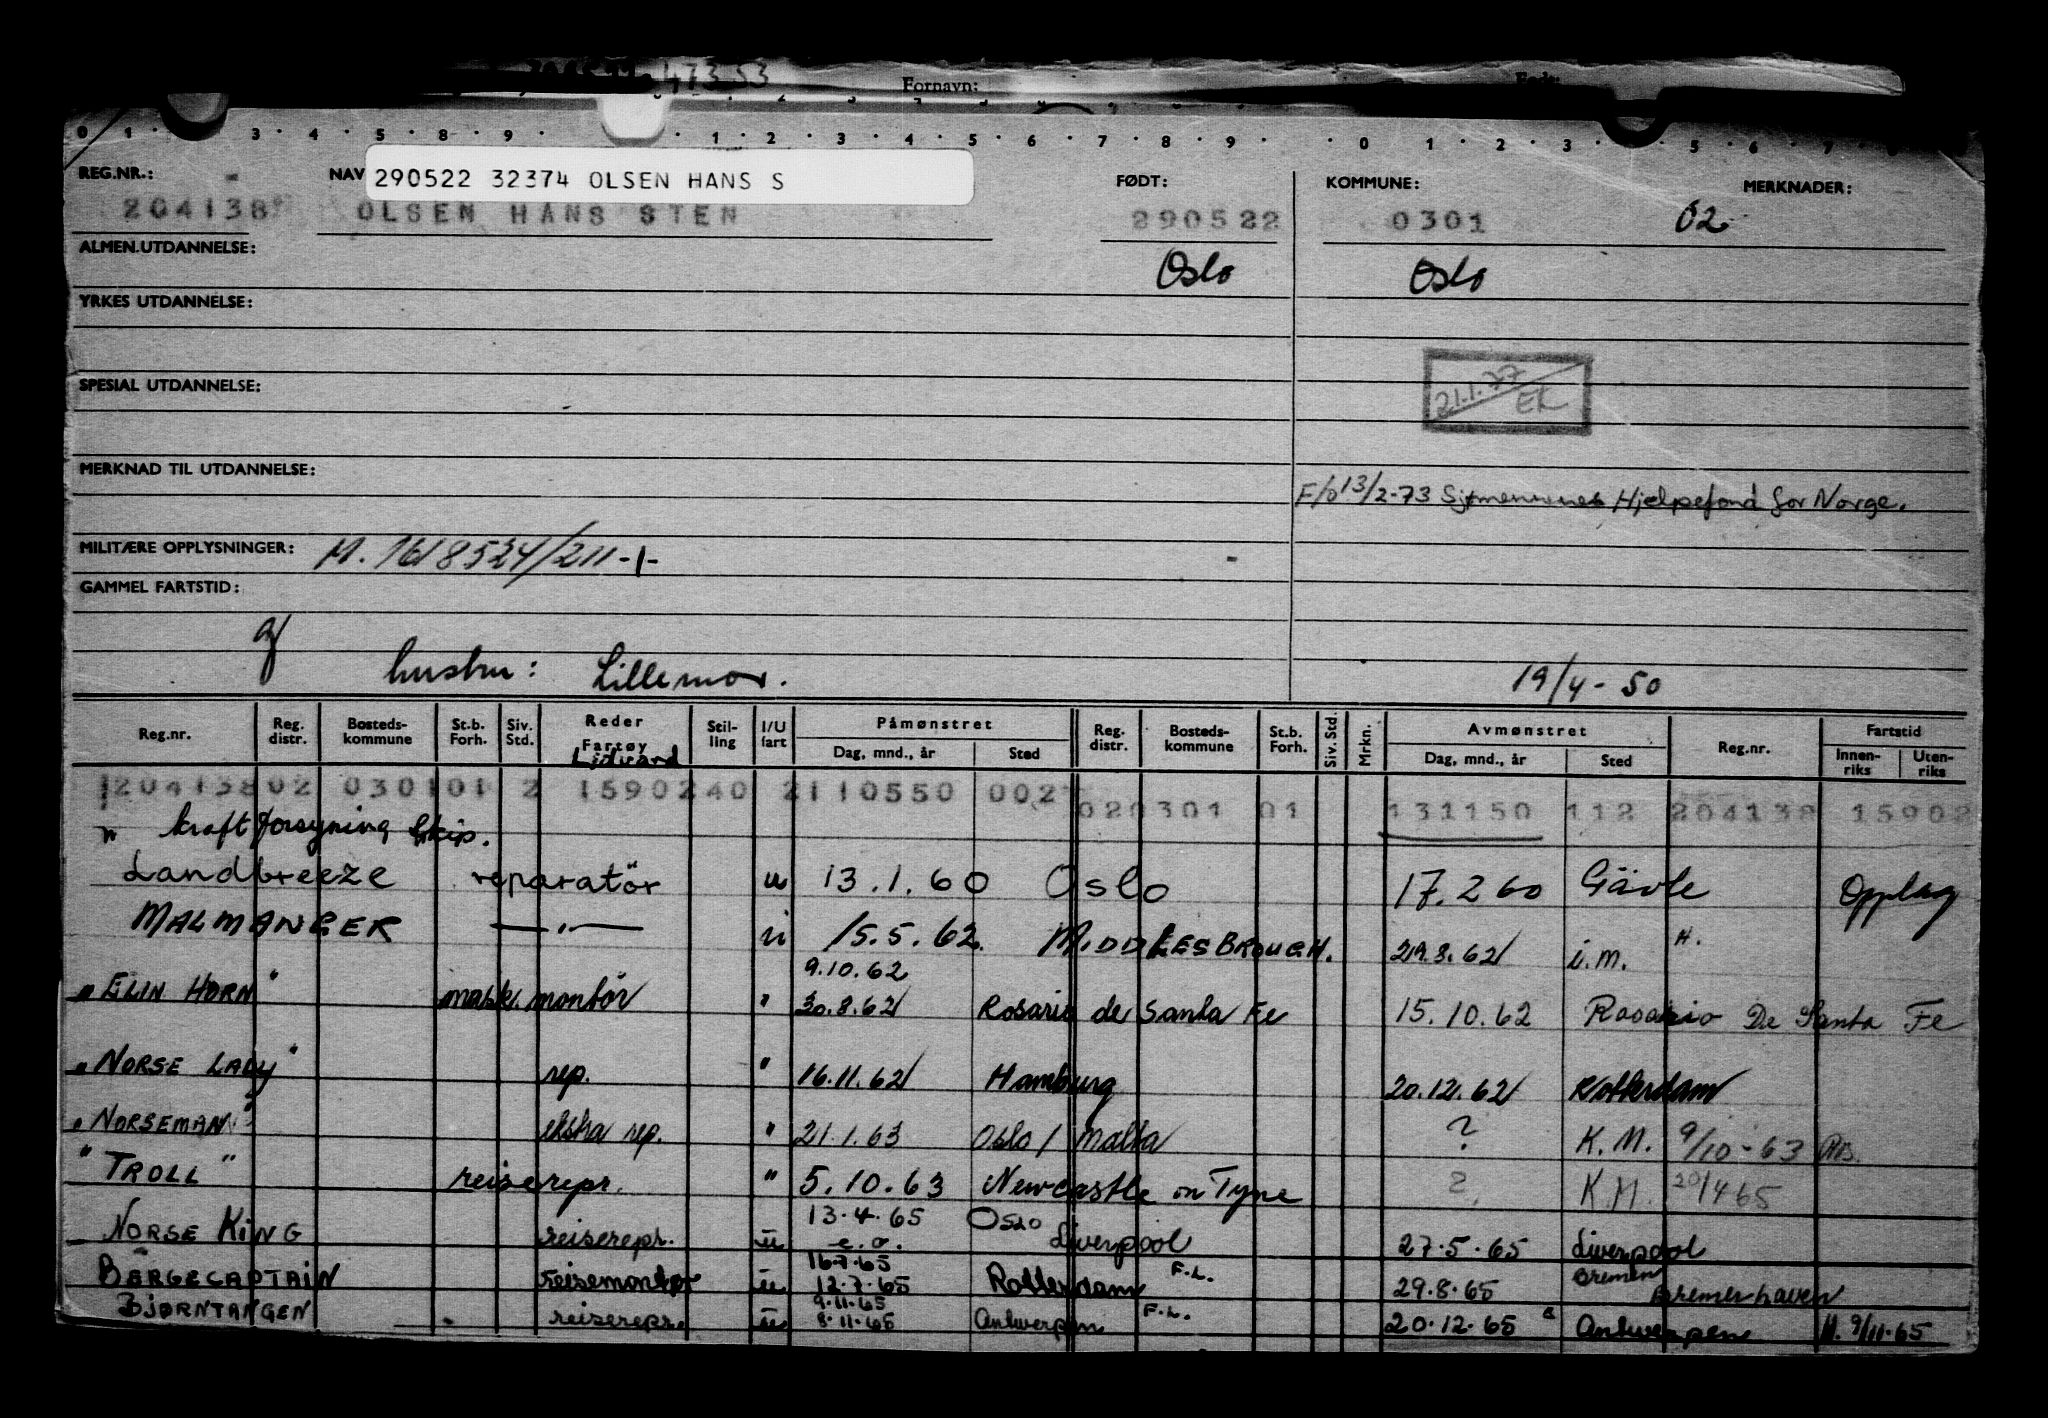 47353
Fornavn:
REG.NR.: NAV 290522 32374 OLSEN HANS S FØDT: KOMMUNE: MERKNADER:
204138 OLSEN HANS STEN 290522 0301 02
ALMEN.UTDANNELSE: Oslo Oslo
YRKES UTDANNELSE:
SPESIAL UTDANNELSE:
21.1.77 EK
MERKNAD TIL UTDANNELSE:
F/o 13/2-73 Sjømennenes Hjelpefond for Norge.
MILITÆRE OPPLYSNINGER: M. 1618524/211-1-
GAMMEL FARTSTID:
hustru: Lillemor. 19/4-50
Reg.nr. Reg. distr. Bosteds-kommune St.b. Forh. Siv. Std. Reder Fartøy Stil-ling I/U fart Påmønstret Dag, mnd., år Sted Reg. distr. Bosteds-kommune St.b. Forh. Siv. Std. Mrkn. Avmønstret Dag, mnd., år Sted Reg.nr. Fartstid Innen-riks Uten-riks
Lidvard
20413802 030101 2 1590240 2110550 002 020301 01 131150 112 204138 15902
" kraftforsyning Skip.
Landbreeze reparatör u 13.1.60 Oslo 17.2 60 Gävle Opplag
MALMANGER —"— u 15.5.62. MIDDLESBROUGH. 29.8.62 i.m. H.
9.10.62
"ELIN HORN" mask. montör " 30.8.62 Rosario de Santa Fe 15.10.62 Rosario De Santa Fe
"NORSE LADY" rep. " 16.11.62 Hamburg 20.12.62 Rotterdam
"NORSEMAN" ekstra rep. " 21.1.63 Oslo / Malta ? K.M. 9/10-63
"TROLL" reiserepr. " 5.10.63 Newcastle on Tyne ? K.M. 20/4 65
13.4.65 Oslo
NORSE KING reiserepr. u e.o. Liverpool 27.5.65 Liverpool
16.7.65
BERGECAPTAIN reisemontør u 12.7.65 Rotterdam F.L. 29.8.65 Bremen Bremerhaven
9.11.65
BJØRNTANGEN reiserepr. u 8.11.65 Antwerpen F.L. 20.12.65 Antwerpen H. 9/11.65